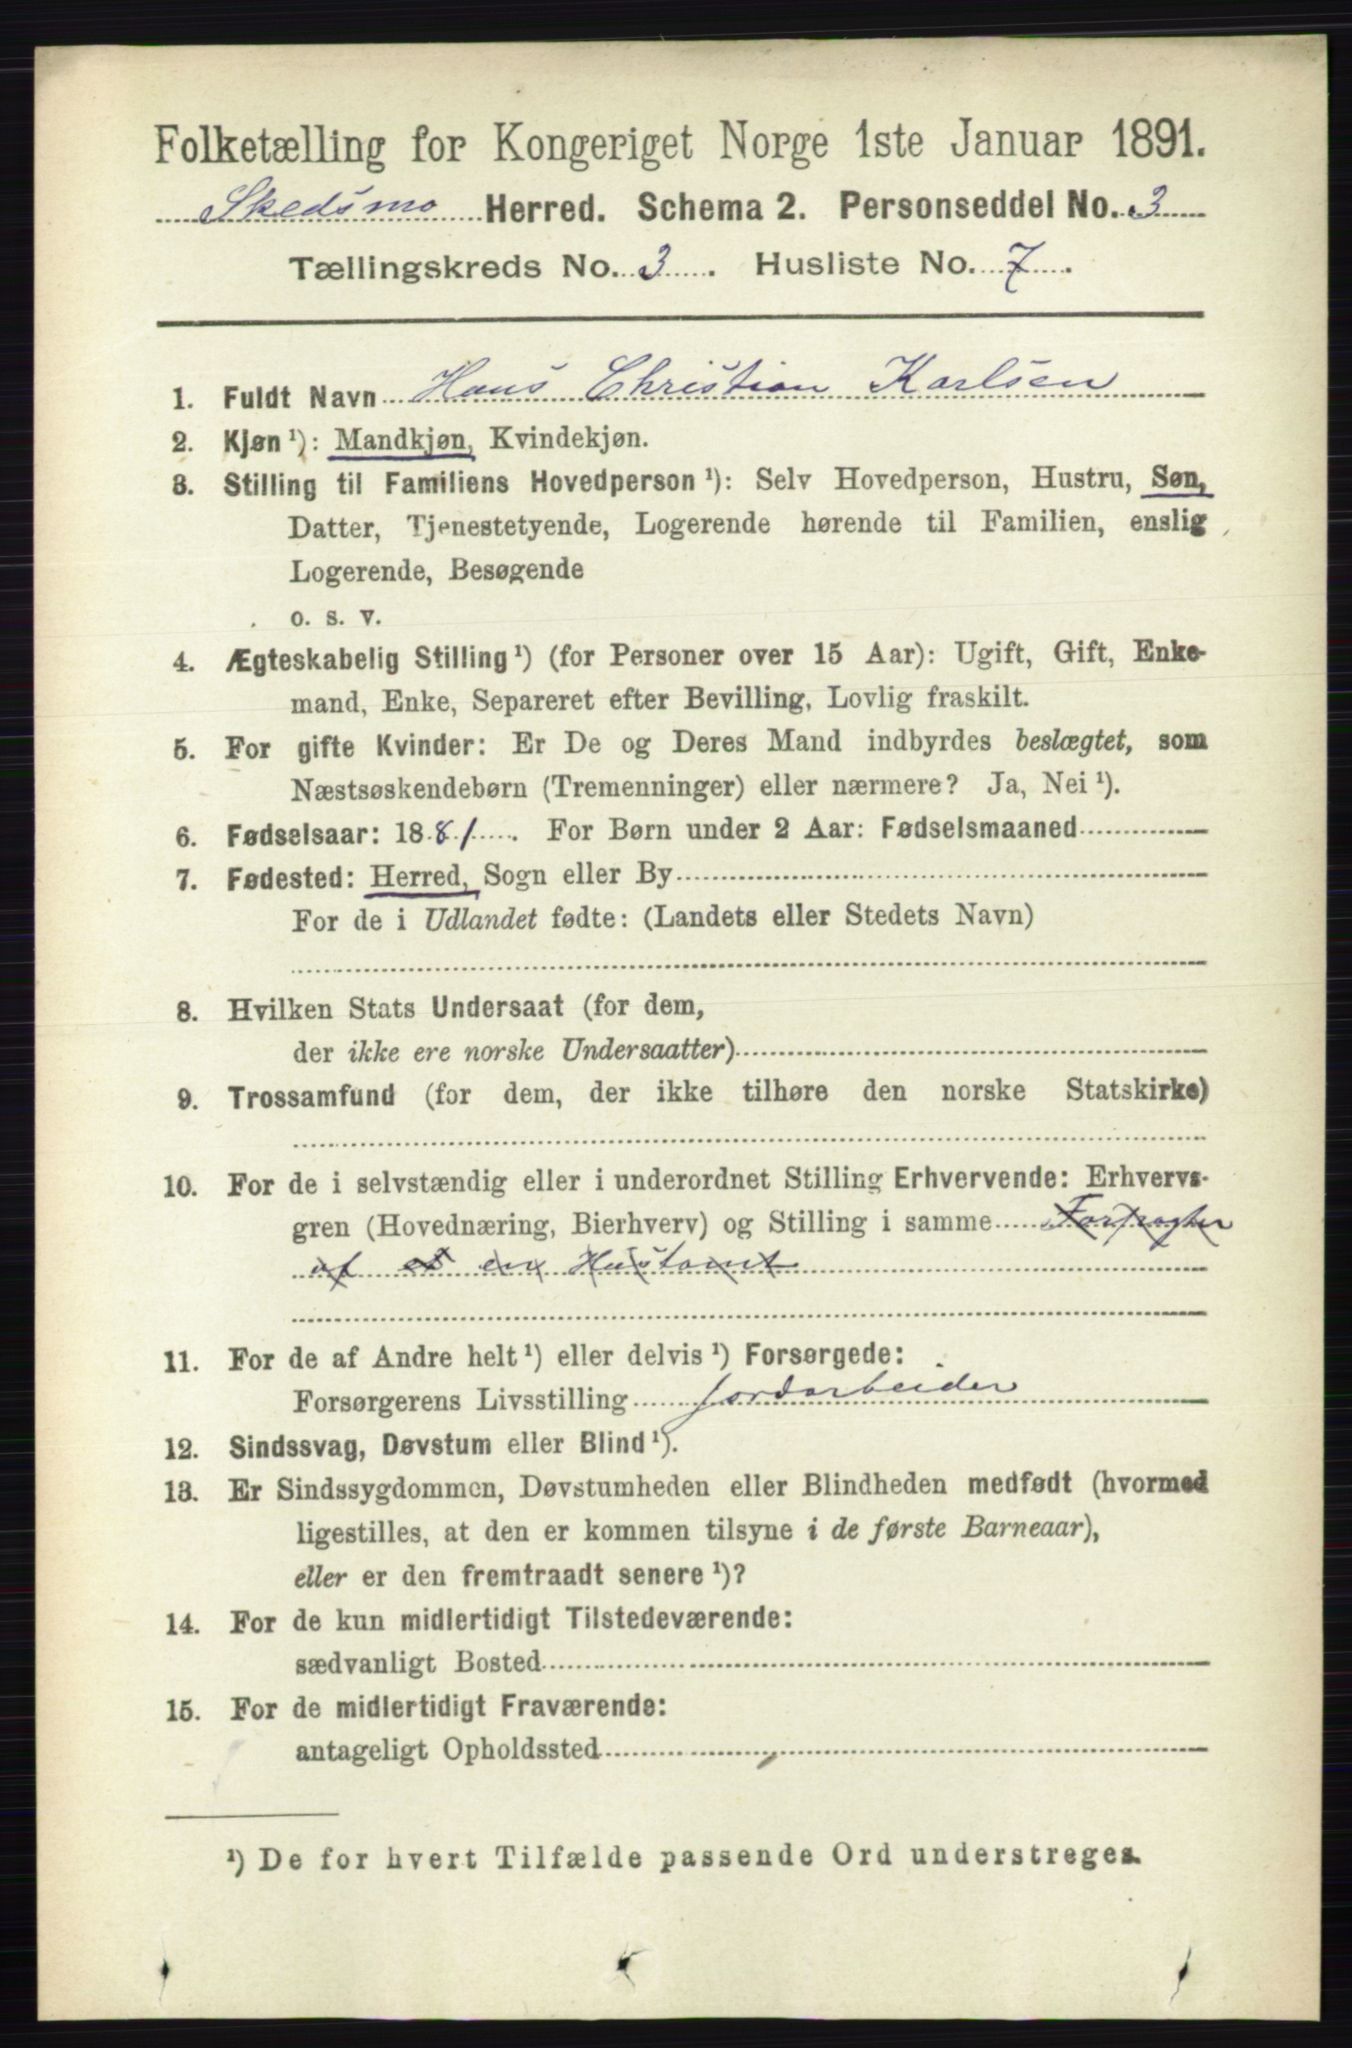 Folketælling for Kongeriget Norge 1ste Januar 1891.
Skedsmo Herred. Schema 2. Personseddel No. 3
Tællingskreds No. 3. Husliste No. 7.
1. Fuldt Navn Hans Christian Karlsen
2. Kjøn ¹): Mandkjøn, Kvindekjøn.
3. Stilling til Familiens Hovedperson ¹): Selv Hovedperson, Hustru, Søn,
Datter, Tjenestetyende, Logerende hørende til Familien, enslig
Logerende, Besøgende
o. s. v.
4. Ægteskabelig Stilling ¹) (for Personer over 15 Aar): Ugift, Gift, Enke-
mand, Enke, Separeret efter Bevilling, Lovlig fraskilt.
5. For gifte Kvinder: Er De og Deres Mand indbyrdes beslægtet, som
Næstsøskendebørn (Tremenninger) eller nærmere? Ja, Nei ¹).
6. Fødselsaar: 1881. For Børn under 2 Aar: Fødselsmaaned
7. Fødested: Herred, Sogn eller By
For de i Udlandet fødte: (Landets eller Stedets Navn)
8. Hvilken Stats Undersaat (for dem,
der ikke ere norske Undersaatter)
9. Trossamfund (for dem, der ikke tilhøre den norske Statskirke)
10. For de i selvstændig eller i underordnet Stilling Erhvervende: Erhvervs-
gren (Hovednæring, Bierhverv) og Stilling i samme
af en Hustomt
11. For de af Andre helt ¹) eller delvis ¹) Forsørgede:
Forsørgerens Livsstilling Jordarbeider
12. Sindssvag, Døvstum eller Blind ¹).
13. Er Sindssygdommen, Døvstumheden eller Blindheden medfødt (hvormed
ligestilles, at den er kommen tilsyne i de første Barneaar),
eller er den fremtraadt senere ¹)?
14. For de kun midlertidigt Tilstedeværende:
sædvanligt Bosted
15. For de midlertidigt Fraværende:
antageligt Opholdssted
¹) De for hvert Tilfælde passende Ord understreges.